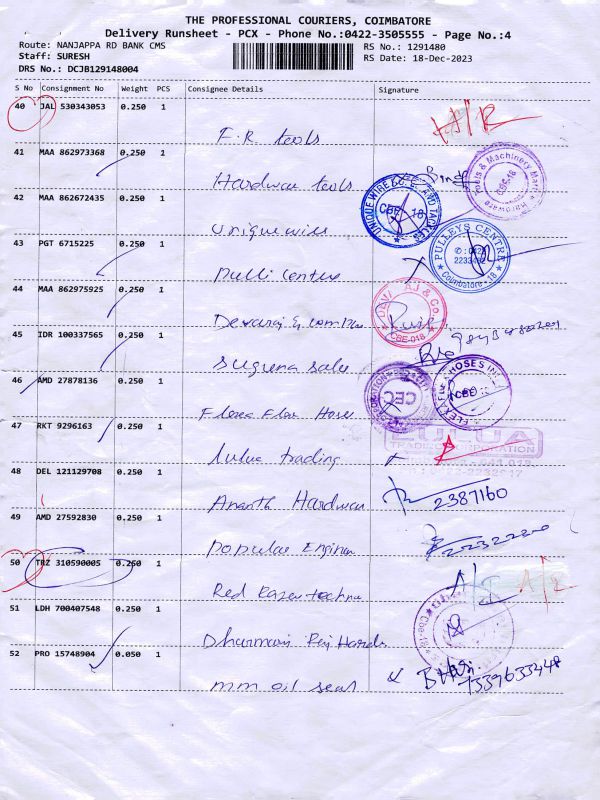 THE PROFESSIONAL COURIERS, COIMBATORE
Delivery Runsheet - PCX - Phone No.:0422-3505555 - Page No.:4
Route: NANJAPPA RD BANK CMS
RS No.: 1291480
Staff: SURESH
RS Date: 18-Dec-2023
DRS No.: DCJB129148004
S No Consignment No Weight PCS Consignee Details Signature
40 JAL 530343053 0.250 1
F.R tools
41 MAA 862973368 0.250 1
Hardware tools
42 MAA 862672435 0.250 1
Unique wire
UNIQUE WIRE
CBE - 18
TOOLS & Machinery
CBE-18
43 PGT 6715225 0.250 1
Pulli Centre
PULLEYS CENTRE
Coimbatore - 18
44 MAA 862975925 0.250 1
Devaraj & company
AJ & Co.
CBE-018
45 IDR 100337565 0.250 1
Suguna sales
46 AMD 27878136 0.250 1
Flexa Flex Hoses
CEC
HOSES
47 RKT 9296163 0.250 1
Lulua trading
LULUA
TRADING CORPORATION
48 DEL 121129708 0.250 1
Ananth Hardware
2387160
49 AMD 27592830 0.250 1
Popular Engineer
50 TRZ 310590005 0.250 1
Red Razer techno
51 LDH 700407548 0.250 1
Dharmaraj Raj Hards
52 PRO 15748904 0.050 1
mm oil seal
7339633448